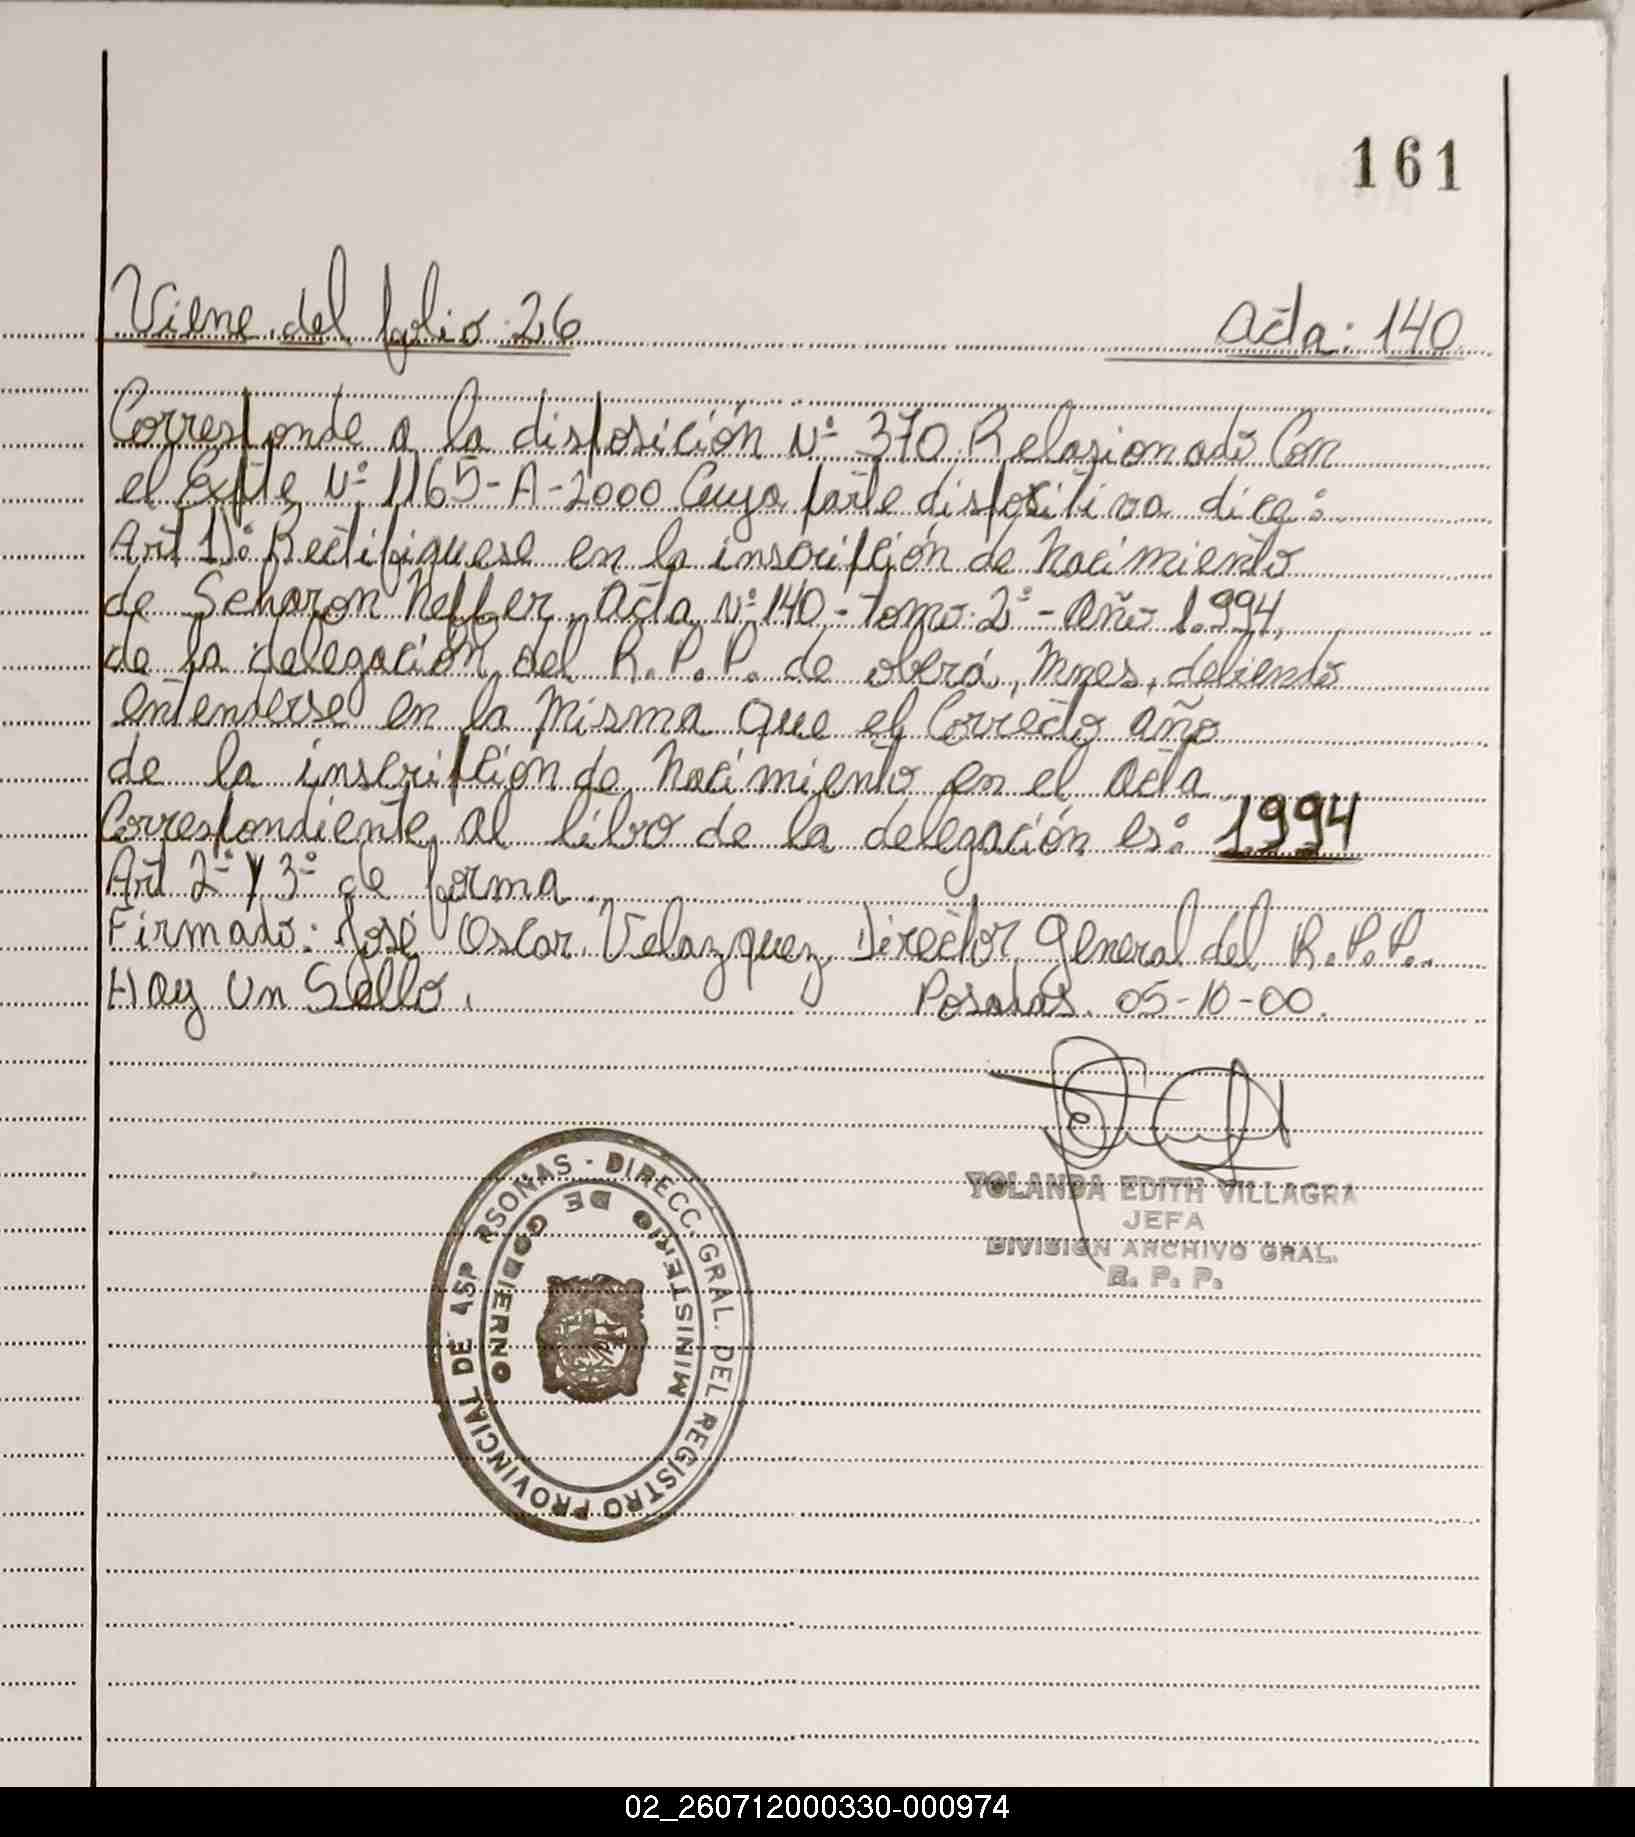 161
Viene del folio 26 Acta: 140
Corresponde a la disposición Nº 370 Relasionado Con
el Expte Nº 1165-A-2000 Cuya parte dispositiva dice:
Art 1): Rectifiquese en la inscripción de Nacimiento
de Seharon Neffer, Acta Nº 140 - Tomo 2º - Año 1.994,
de la delegación del R.P.P. de oberá, Mnes, debiendo
entenderse en la misma que el Correcto año
de la inscripción de Nacimiento en el acta
Correspondiente al libro de la delegación es: 1994
Art 2º y 3º de forma
Firmado: José Oscar Velazquez Director General del R.P.P..
Hay un Sello. Posadas. 05-10-00.
YOLANDA EDITH VILLAGRA
JEFA
DIVISION ARCHIVO GRAL.
R. P. P.
DIRECC. GRAL. DEL REGISTRO PROVINCIAL DE LAS P RSONAS -
MINISTERIO DE GOBIERNO
02_260712000330-000974